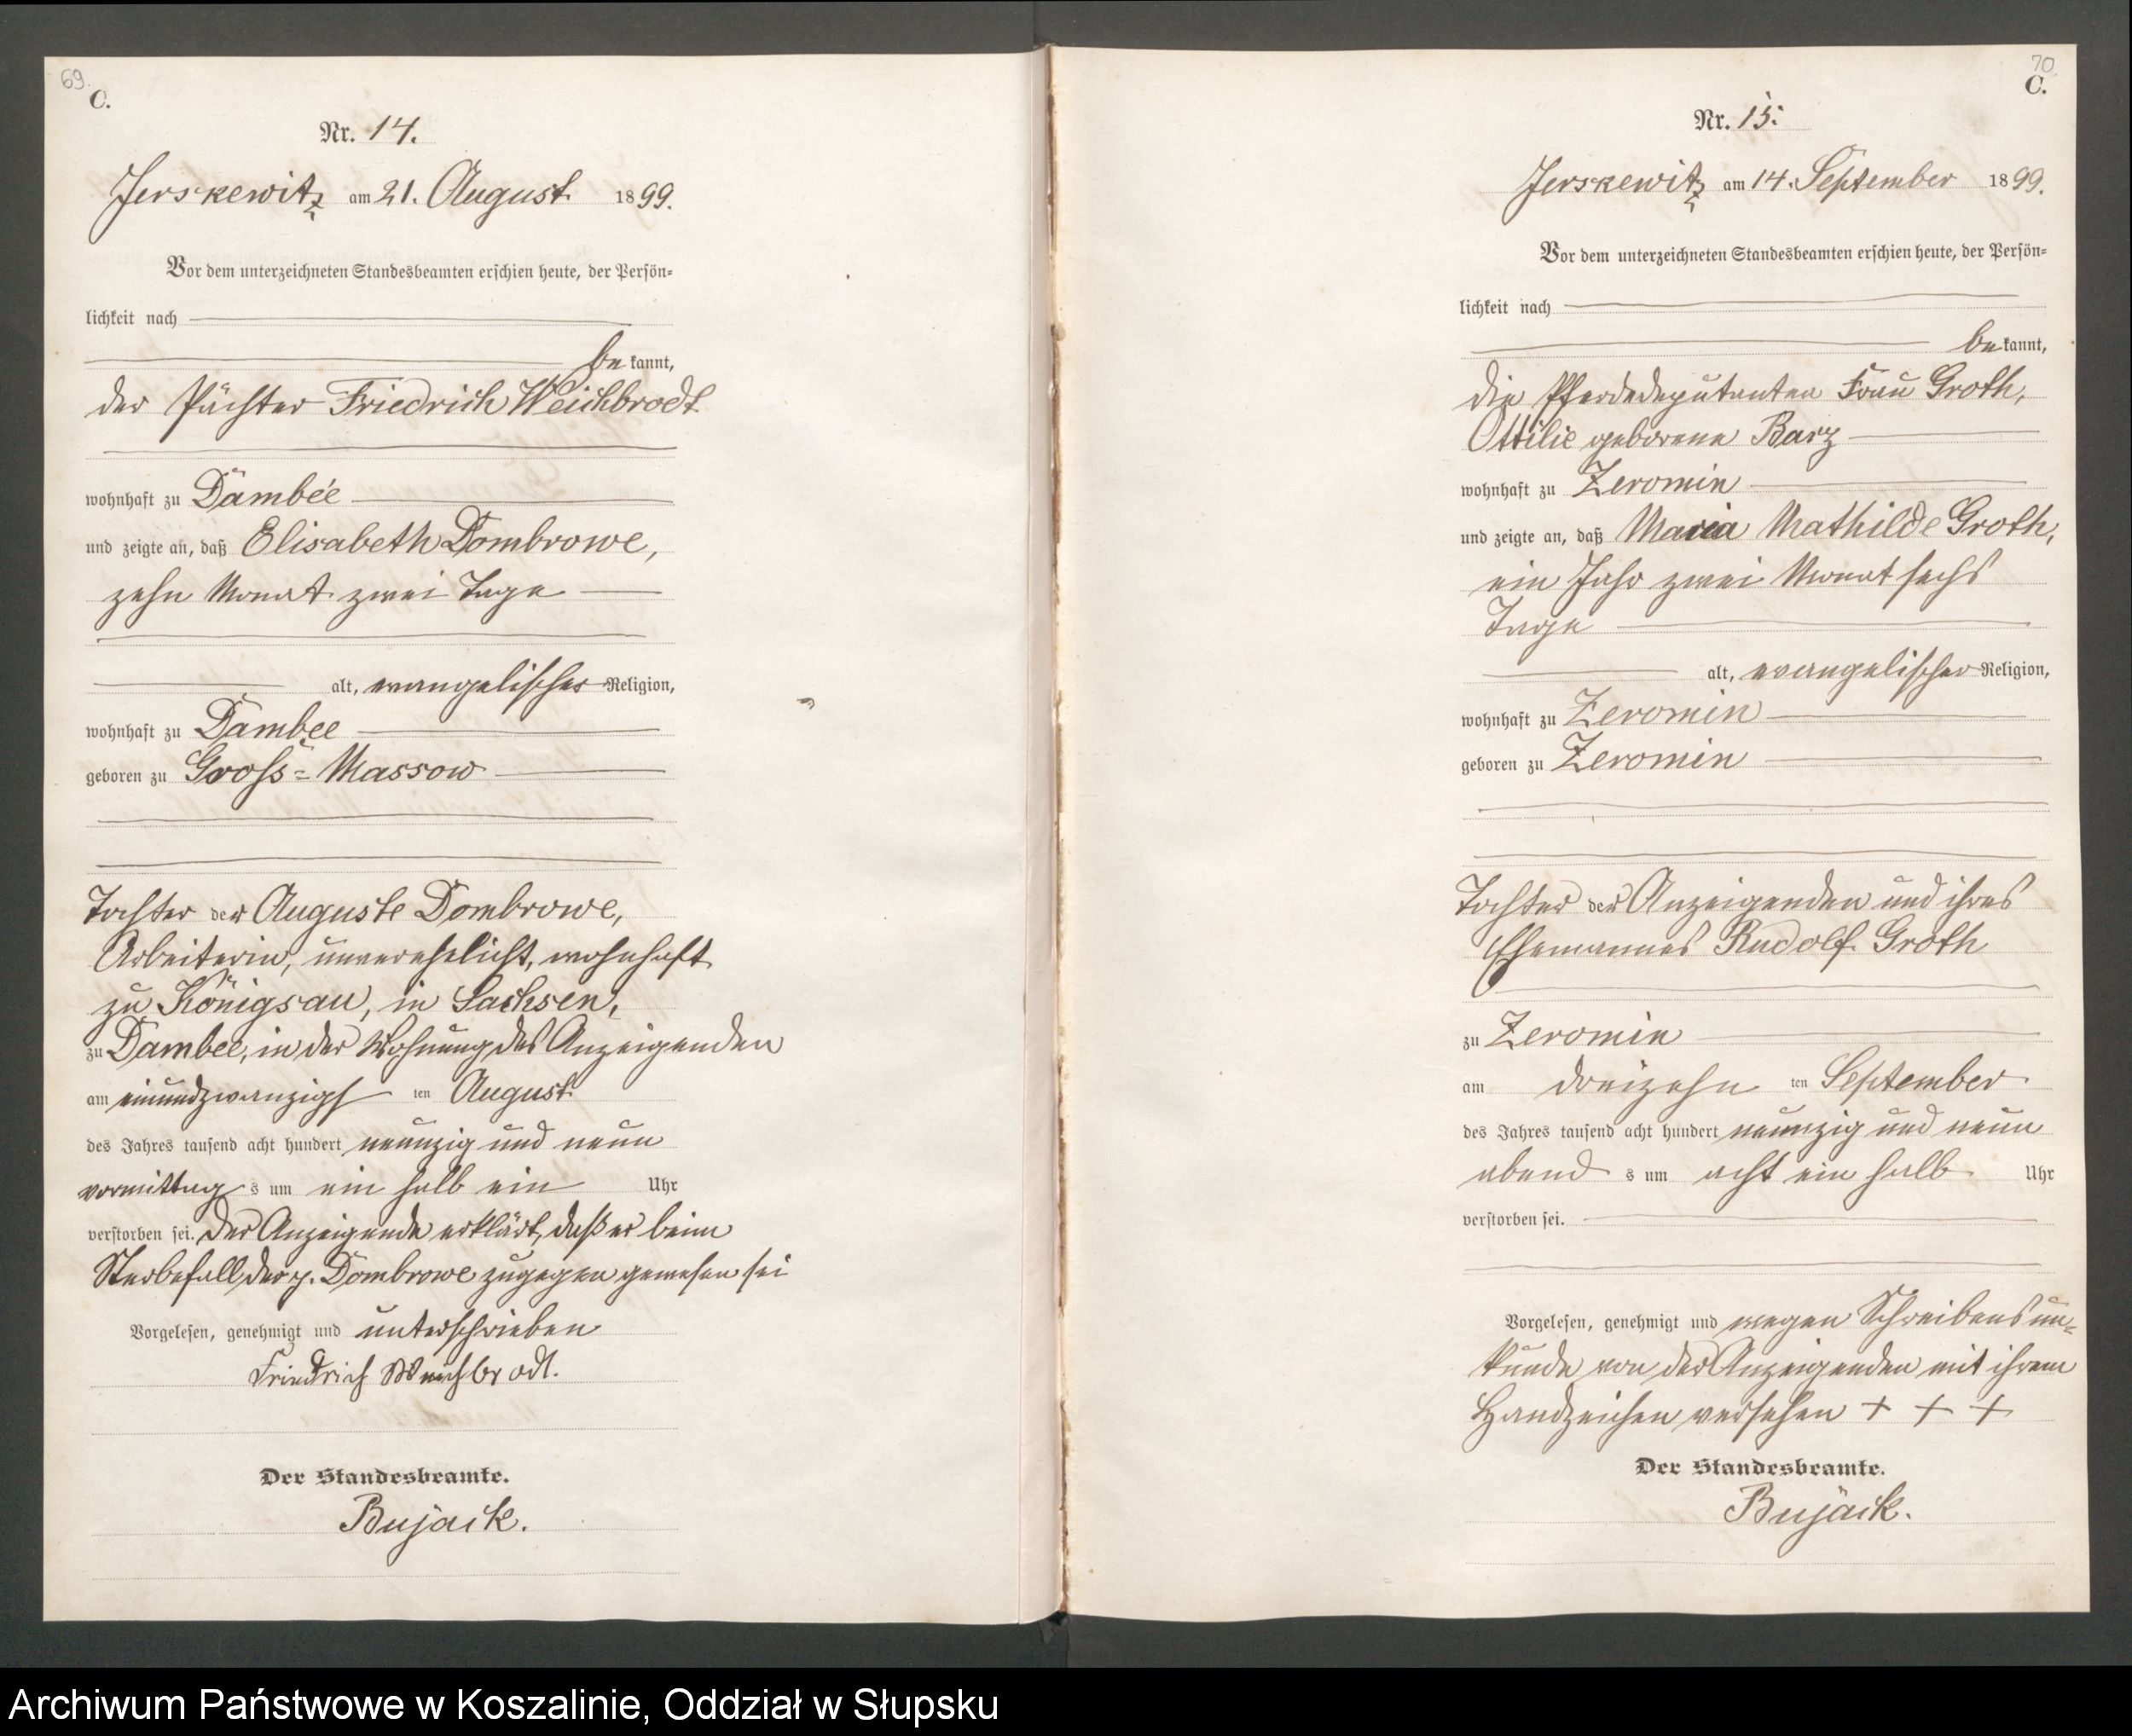 69.
C.
Nr. 14.
Jerskewitz am 21. August 1899.
Vor dem unterzeichneten Standesbeamten erschien heute, der Persön=
lichkeit nach
be kannt,
der Pächter Friedrich Weichbrodt
wohnhaft zu Dambee
und zeigte an, daß Elisabeth Dombrowe,
zehn Monat zwei Tage
alt, evangelischer Religion,
wohnhaft zu Dambee
geboren zu Gross=Massow
Tochter der Auguste Dombrowe,
Arbeiterin, unverehelicht, wohnhaft
zu Königsau, in Sachsen,
zu Dambee, in der Wohnung des Anzeigenden
am einundzwanzigs ten August
des Jahres tausend acht hundert neunzig und neun
vormittag s um ein halb ein Uhr
verstorben sei. Der Anzeigende erklärt, daß er beim
Sterbefall der p. Dombrowe zugegen gewesen sei
Vorgelesen, genehmigt und unterschrieben
Friedrich Weichbrodt.
Der Standesbeamte.
Bujack.
70.
C.
Nr. 15.
Jerskewitz am 14. September 1899.
Vor dem unterzeichneten Standesbeamten erschien heute, der Persön=
lichkeit nach
be kannt,
die Pferdedeputanten Frau Groth,
Ottilie geborene Barz
wohnhaft zu Zeromin
und zeigte an, daß Maria Mathilde Groth,
ein Jahr zwei Monat sechs
Tage
alt, evangelischer Religion,
wohnhaft zu Zeromin
geboren zu Zeromin
Tochter der Anzeigenden und ihres
Ehemannes Rudolf Groth
zu Zeromin
am dreizehn ten September
des Jahres tausend acht hundert neunzig und neun
abend s um acht ein halb Uhr
verstorben sei.
Vorgelesen, genehmigt und wegen Schreibensun=
kunde von der Anzeigenden mit ihrem
Handzeichen versehen + + +
Der Standesbeamte.
Bujack.
Archiwum Państwowe w Koszalinie, Oddział w Słupsku